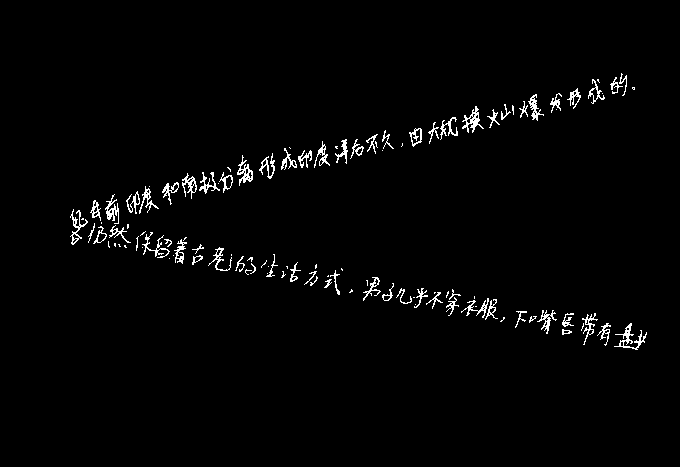 年前印度和南极分离形成印度洋后不久，由大规模火山爆发形成的。
仍然保留着古老的生活方式，男子几乎不穿衣服，下嘴唇带有